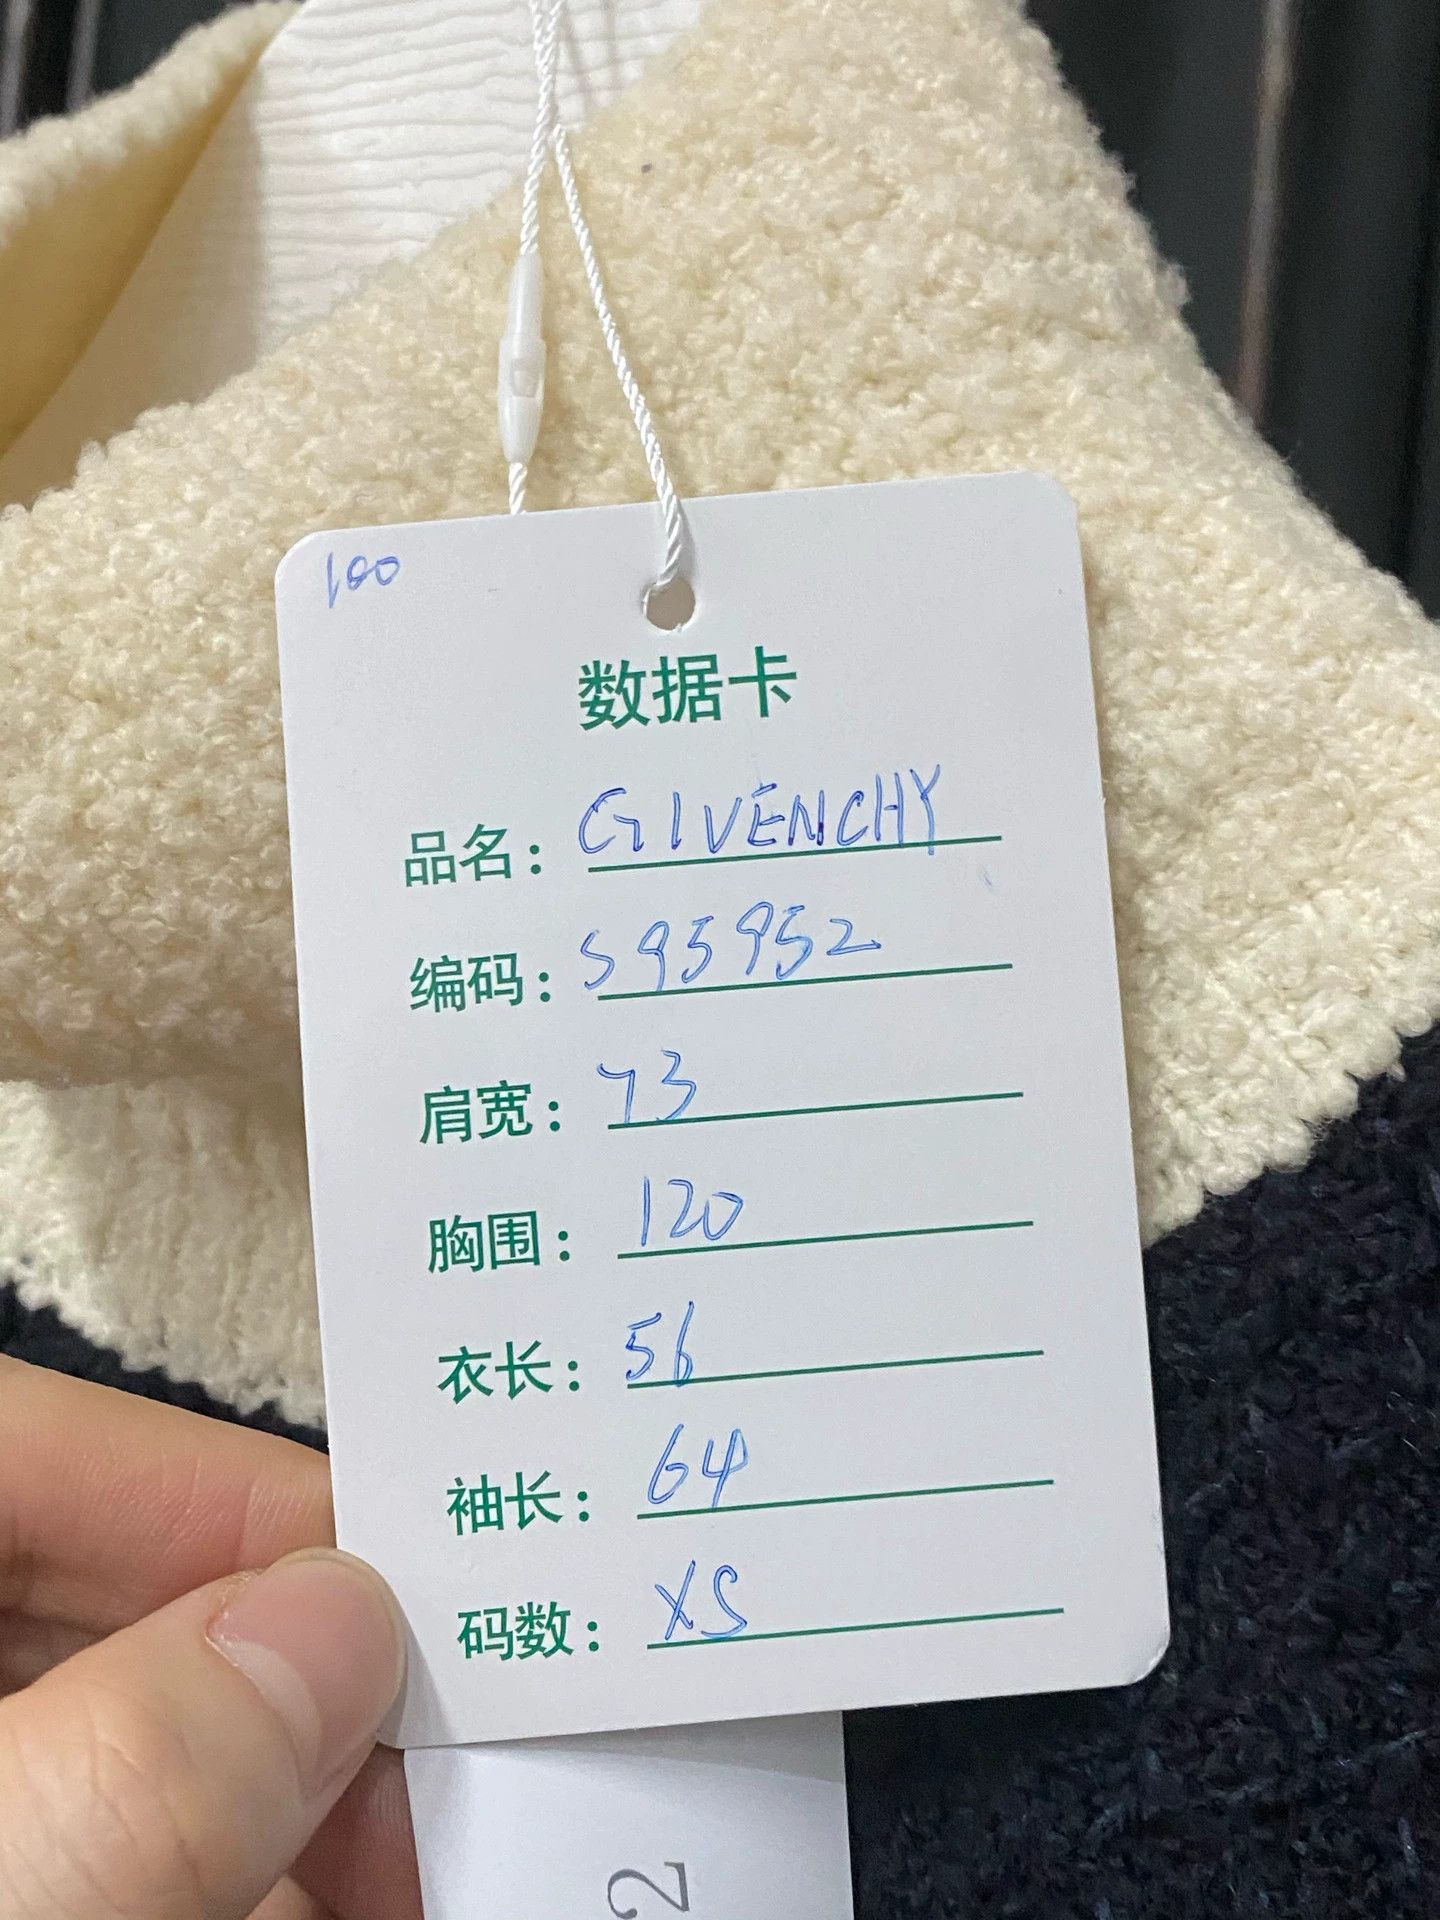 100
数据卡
品名：GIVENCHY
编码：S95952
肩宽：73
胸围：120
衣长：56
袖长：64
码数：XS
2